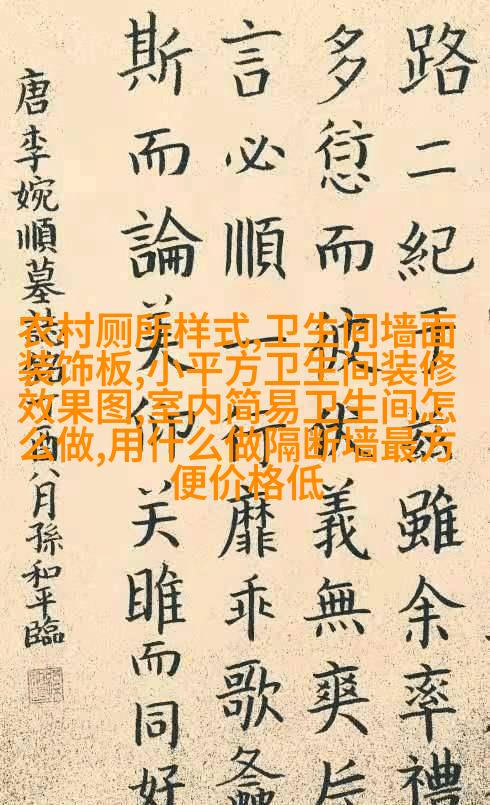 路二紀于茲雖余率禮
多愆而義無爽
言必順行靡乖歌
斯而論美師关雎而同好
唐李婉順墓酉八月孫和平臨
农村厕所样式,卫生间墙面
装饰板,小平方卫生间装修
效果图,室内简易卫生间怎
么做,用什么做隔断墙最方
便价格低